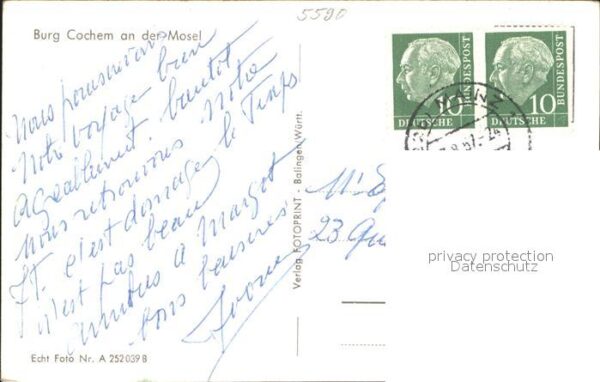 5590
Burg Cochem an der Mosel
Nous poursuivons
Notre voyage bien
agréablement. bientôt
nous retrouvons Notre
J. c'est dommage le Temps
n'est pas beau
amitiés à Margot
bons baisers
Yvonne
Echt Foto Nr. A 252039 B
Verlag FOTOPRINT - Balingen/Württ.
10 DEUTSCHE BUNDESPOST
10 DEUTSCHE BUNDESPOST
MAINZ
23
privacy protection
Datenschutz